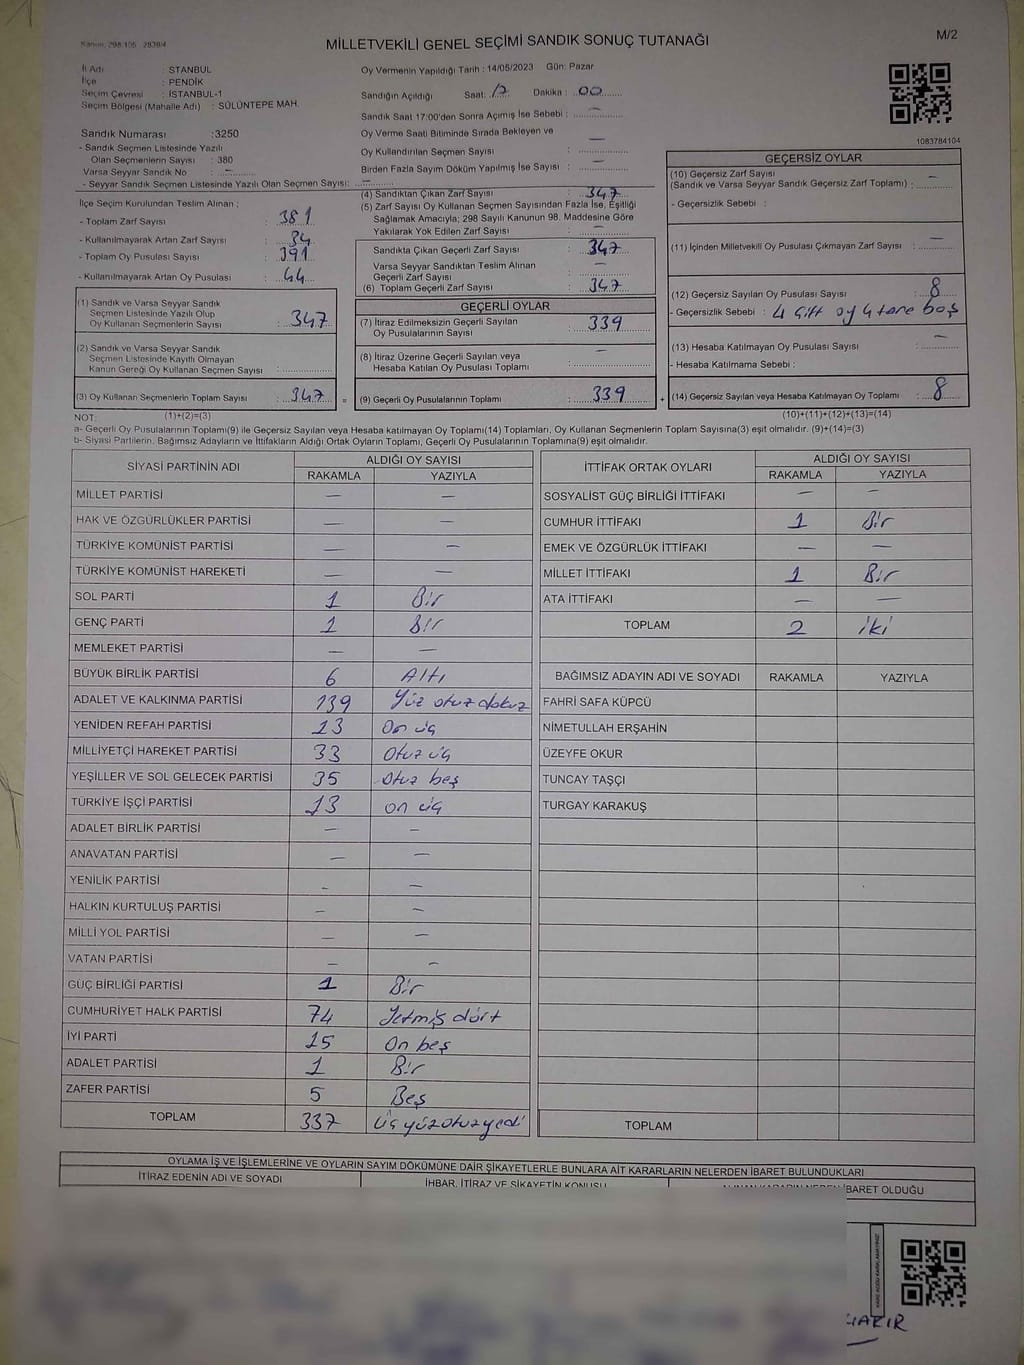 Kanun: 298 105 2839/4
MİLLETVEKİLİ GENEL SEÇİMİ SANDIK SONUÇ TUTANAĞI
M/2
İl Adı : İSTANBUL
İlçe : PENDİK
Seçim Çevresi : İSTANBUL-1
Seçim Bölgesi (Mahalle Adı) : SÜLÜNTEPE MAH.
Sandık Numarası : 3250
- Sandık Seçmen Listesinde Yazılı
Olan Seçmenlerin Sayısı : 380
Varsa Seyyar Sandık No : —
- Seyyar Sandık Seçmen Listesinde Yazılı Olan Seçmen Sayısı: —
İlçe Seçim Kurulundan Teslim Alınan ;
- Toplam Zarf Sayısı : 381
- Kullanılmayarak Artan Zarf Sayısı : 34
- Toplam Oy Pusulası Sayısı : 391
- Kullanılmayarak Artan Oy Pusulası : 44
(1) Sandık ve Varsa Seyyar Sandık
Seçmen Listesinde Yazılı Olup
Oy Kullanan Seçmenlerin Sayısı : 347
(2) Sandık ve Varsa Seyyar Sandık
Seçmen Listesinde Kayıtlı Olmayan
Kanun Gereği Oy Kullanan Seçmen Sayısı :
(3) Oy Kullanan Seçmenlerin Toplam Sayısı : 347
Oy Vermenin Yapıldığı Tarih : 14/05/2023 Gün: Pazar
Sandığın Açıldığı Saat: 17 Dakika : 00
Sandık Saat 17:00'den Sonra Açımış İse Sebebi : —
Oy Verme Saati Bitiminde Sırada Bekleyen ve
Oy Kullandırılan Seçmen Sayısı : —
Birden Fazla Sayım Döküm Yapılmış İse Sayısı : —
(4) Sandıktan Çıkan Zarf Sayısı : 347
(5) Zarf Sayısı Oy Kullanan Seçmen Sayısından Fazla İse, Eşitliği
Sağlamak Amacıyla; 298 Sayılı Kanunun 98. Maddesine Göre
Yakılarak Yok Edilen Zarf Sayısı : —
Sandıkta Çıkan Geçerli Zarf Sayısı : 347
Varsa Seyyar Sandıktan Teslim Alınan
Geçerli Zarf Sayısı : —
(6) Toplam Geçerli Zarf Sayısı : 347
GEÇERLİ OYLAR
(7) İtiraz Edilmeksizin Geçerli Sayılan
Oy Pusulasının Sayısı : 339
(8) İtiraz Üzerine Geçerli Sayılan veya
Hesaba Katılan Oy Pusulası Toplamı : —
= (9) Geçerli Oy Pusulalarının Toplamı : 339
1083784104
GEÇERSİZ OYLAR
(10) Geçersiz Zarf Sayısı
(Sandık ve Varsa Seyyar Sandık Geçersiz Zarf Toplamı) : —
- Geçersizlik Sebebi :
(11) İçinden Milletvekili Oy Pusulası Çıkmayan Zarf Sayısı : —
(12) Geçersiz Sayılan Oy Pusulası Sayısı : 8
- Geçersizlik Sebebi : 4 Çift oy 4 tane boş
(13) Hesaba Katılmayan Oy Pusulası Sayısı : —
- Hesaba Katılmama Sebebi :
+ (14) Geçersiz Sayılan veya Hesaba Katılmayan Oy Toplamı : 8
NOT: (1)+(2)=(3) (10)+(11)+(12)+(13)=(14)
a- Geçerli Oy Pusulalarının Toplamı(9) ile Geçersiz Sayılan veya Hesaba katılmayan Oy Toplamı(14) Toplamları, Oy Kullanan Seçmenlerin Toplam Sayısına(3) eşit olmalıdır. (9)+(14)=(3)
b- Siyasi Partilerin, Bağımsız Adayların ve İttifakların Aldığı Ortak Oyların Toplamı, Geçerli Oy Pusulalarının Toplamına(9) eşit olmalıdır.
SİYASİ PARTİNİN ADI ALDIĞI OY SAYISI
RAKAMLA YAZIYLA
MİLLET PARTİSİ — —
HAK VE ÖZGÜRLÜKLER PARTİSİ — —
TÜRKİYE KOMÜNİST PARTİSİ — —
TÜRKİYE KOMÜNİST HAREKETİ — —
SOL PARTİ 1 Bir
GENÇ PARTİ 1 Bir
MEMLEKET PARTİSİ — —
BÜYÜK BİRLİK PARTİSİ 6 Altı
ADALET VE KALKINMA PARTİSİ 139 Yüz otuz dokuz
YENİDEN REFAH PARTİSİ 13 On üç
MİLLİYETÇİ HAREKET PARTİSİ 33 Otuz üç
YEŞİLLER VE SOL GELECEK PARTİSİ 35 otuz beş
TÜRKİYE İŞÇİ PARTİSİ 13 on üç
ADALET BİRLİK PARTİSİ — —
ANAVATAN PARTİSİ — —
YENİLİK PARTİSİ — —
HALKIN KURTULUŞ PARTİSİ — —
MİLLİ YOL PARTİSİ — —
VATAN PARTİSİ — —
GÜÇ BİRLİĞİ PARTİSİ 1 Bir
CUMHURİYET HALK PARTİSİ 74 Yetmiş dört
İYİ PARTİ 15 On beş
ADALET PARTİSİ 1 Bir
ZAFER PARTİSİ 5 Beş
TOPLAM 337 üç yüz otuz yedi
İTTİFAK ORTAK OYLARI ALDIĞI OY SAYISI
RAKAMLA YAZIYLA
SOSYALİST GÜÇ BİRLİĞİ İTTİFAKI — —
CUMHUR İTTİFAKI 1 Bir
EMEK VE ÖZGÜRLÜK İTTİFAKI — —
MİLLET İTTİFAKI 1 Bir
ATA İTTİFAKI — —
TOPLAM 2 iki
BAĞIMSIZ ADAYIN ADI VE SOYADI RAKAMLA YAZIYLA
FAHRİ SAFA KÜPCÜ
NİMETULLAH ERŞAHİN
ÜZEYFE OKUR
TUNCAY TAŞÇI
TURGAY KARAKUŞ
TOPLAM
OYLAMA İŞ VE İŞLEMLERİNE VE OYLARIN SAYIM DÖKÜMÜNE DAİR ŞİKAYETLERLE BUNLARA AİT KARARLARIN NELERDEN İBARET BULUNDUKLARI
İTİRAZ EDENİN ADI VE SOYADI İHBAR, İTİRAZ VE ŞİKAYETİN KONUSU ALINAN KARARIN NEDEN İBARET OLDUĞU